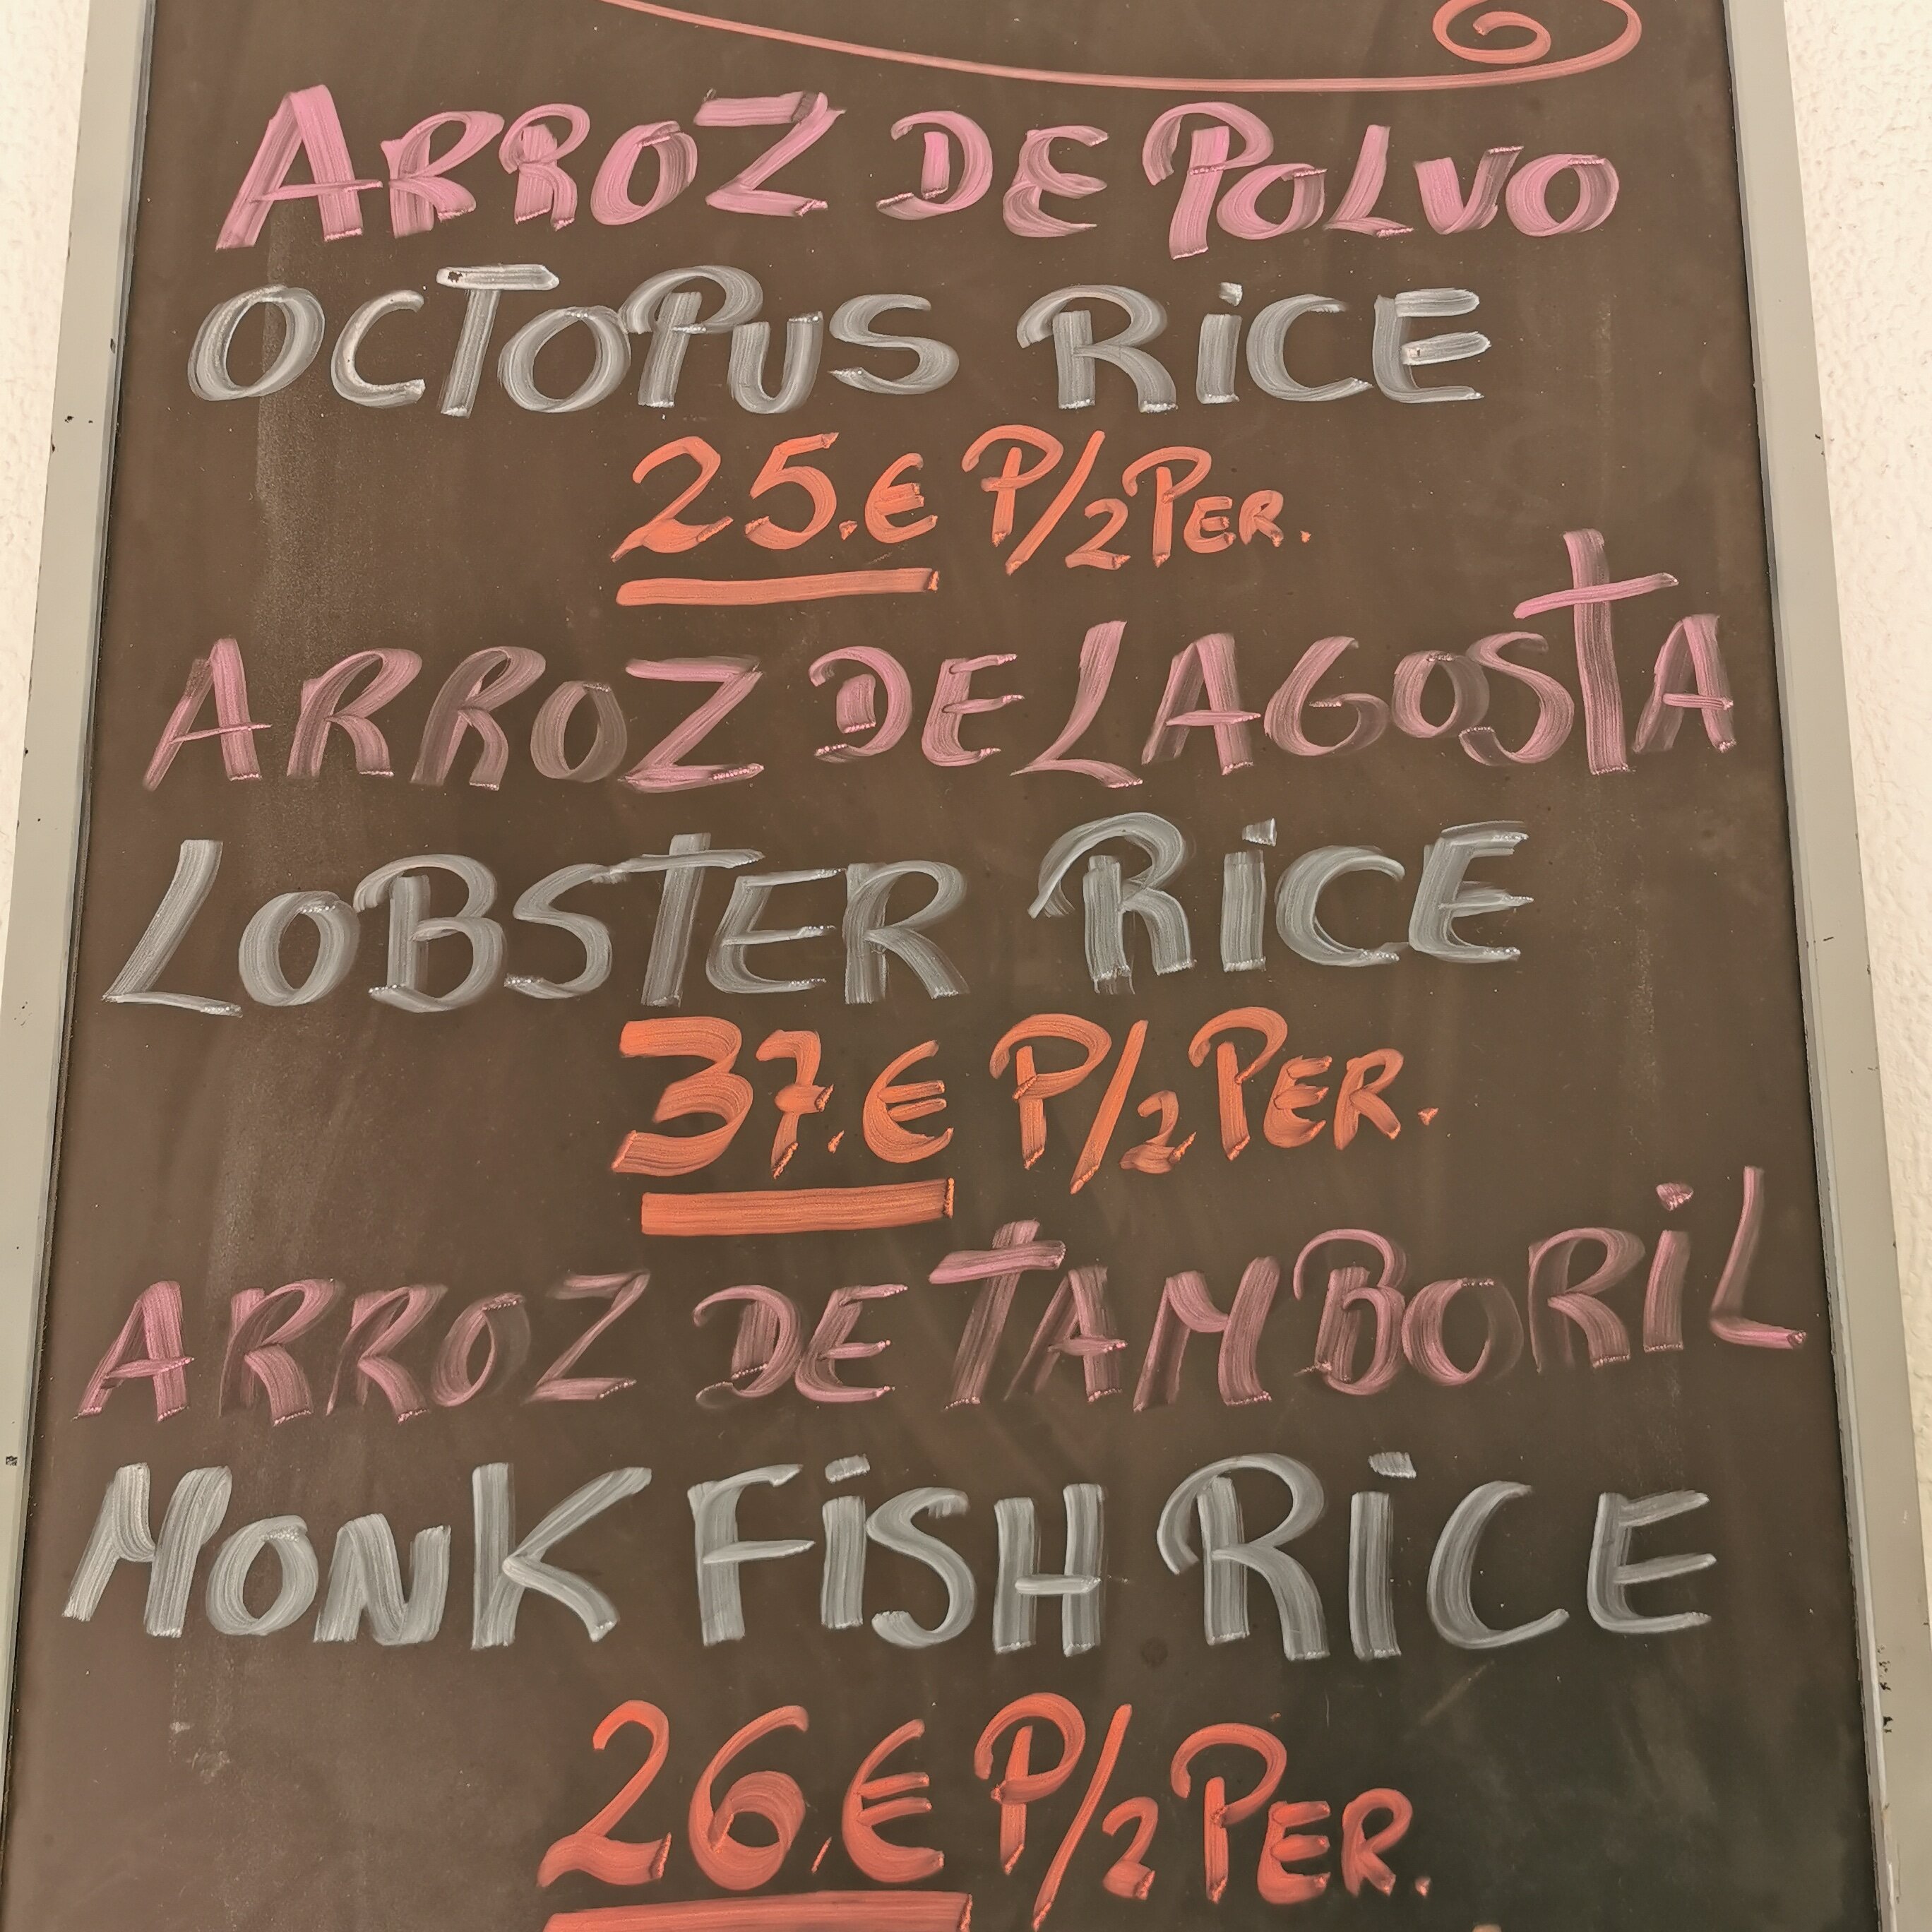 ARROZ DE POLVO
OCTOPUS RiCE
25.€ P/2 PER.
ARROZ DE LAGOSTA
LOBSTER RiCE
37.€ P/2 PER.
ARROZ DE TAMBORiL
MONK FiSH RiCE
26.€ P/2 PER.